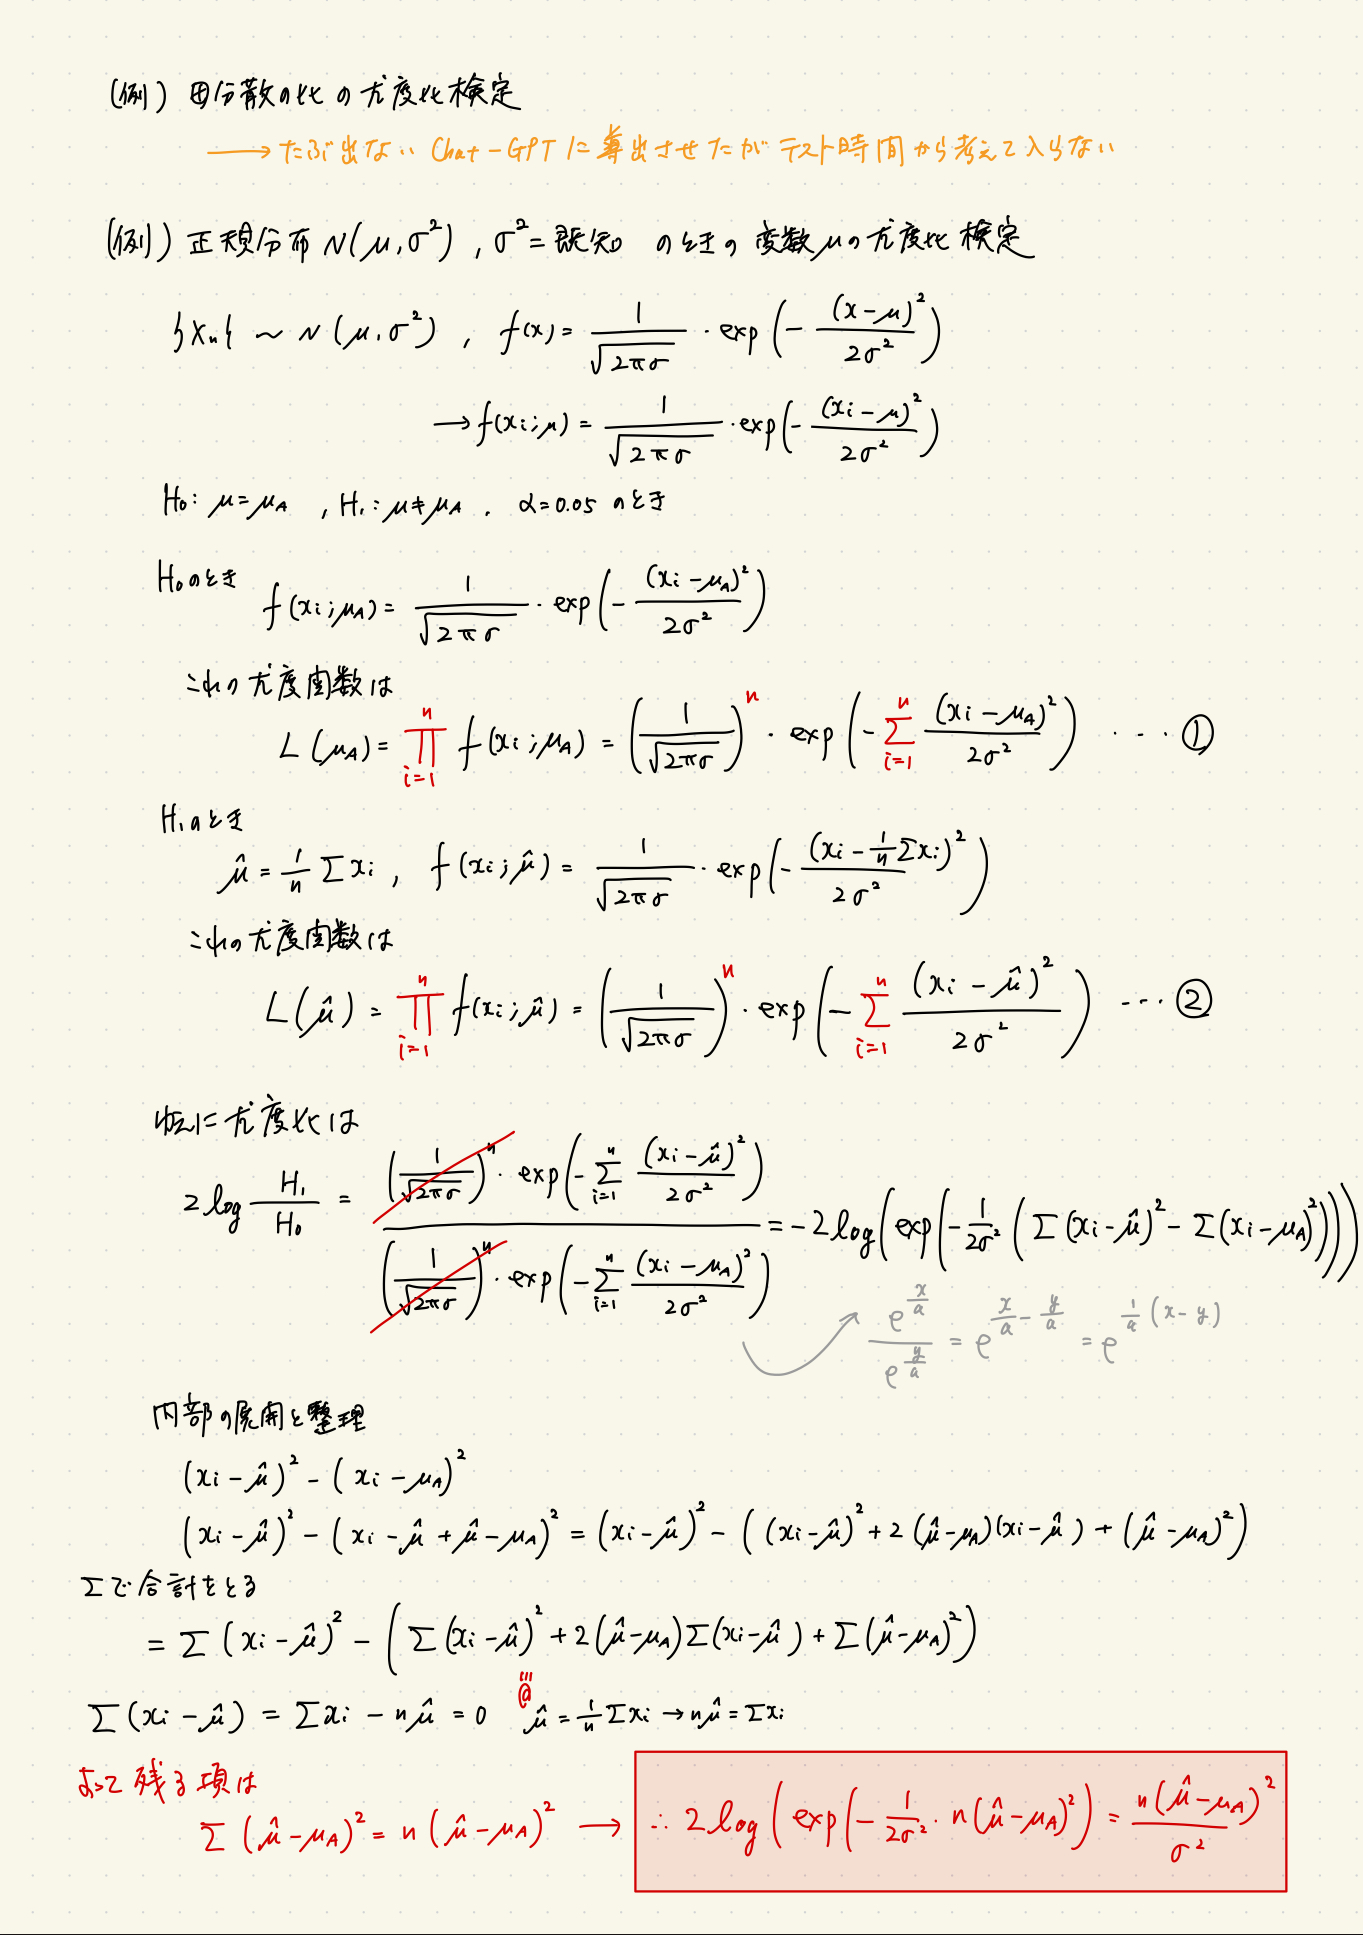 (例) 母分散の比の尤度比検定
→ たぶ出ない Chat-GPTに導出させたがテスト時間から考えて入らない
(例) 正規分布 N(μ, σ²) , σ²=既知 のときの変数μの尤度比検定
{Xₙ} ~ N(μ, σ²) , f(x) = 1/√2πσ · exp(- (x-μ)²/2σ²)
→ f(xi;μ) = 1/√2πσ · exp(- (xi-μ)²/2σ²)
H₀: μ=μA , H₁: μ≠μA , α=0.05 のとき
H₀のとき f(xi;μA) = 1/√2πσ · exp(- (xi-μA)²/2σ²)
これの尤度関数は
L(μA) = ∏_{i=1}^{n} f(xi;μA) = (1/√2πσ)ⁿ · exp(- Σ_{i=1}^{n} (xi-μA)²/2σ²) ・・・①
H₁のとき
μ̂ = 1/n Σxi , f(xi;μ̂) = 1/√2πσ · exp(- (xi - 1/n Σxi)²/2σ²)
これの尤度関数は
L(μ̂) = ∏_{i=1}^{n} f(xi;μ̂) = (1/√2πσ)ⁿ · exp(- Σ_{i=1}^{n} (xi-μ̂)²/2σ²) ・・・②
ゆえに尤度比は
2log H₁/H₀ = (1/√2πσ)ⁿ · exp(- Σ_{i=1}^{n} (xi-μ̂)²/2σ²) / (1/√2πσ)ⁿ · exp(- Σ_{i=1}^{n} (xi-μA)²/2σ²) = -2log(exp(- 1/2σ² (Σ(xi-μ̂)² - Σ(xi-μA)²))))
e^{x/a} / e^{y/a} = e^{x/a - y/a} = e^{1/a (x-y)}
内部の展開と整理
(xi-μ̂)² - (xi-μA)²
(xi-μ̂)² - (xi-μ̂+μ̂-μA)² = (xi-μ̂)² - ((xi-μ̂)² + 2(μ̂-μA)(xi-μ̂) + (μ̂-μA)²)
Σで合計をとる
= Σ(xi-μ̂)² - (Σ(xi-μ̂)² + 2(μ̂-μA)Σ(xi-μ̂) + Σ(μ̂-μA)²)
Σ(xi-μ̂) = Σxi - nμ̂ = 0 @ μ̂ = 1/n Σxi → nμ̂ = Σxi
よって残る項は
Σ(μ̂-μA)² = n(μ̂-μA)² → ∴ 2log(exp(- 1/2σ² · n(μ̂-μA)²)) = n(μ̂-μA)²/σ²